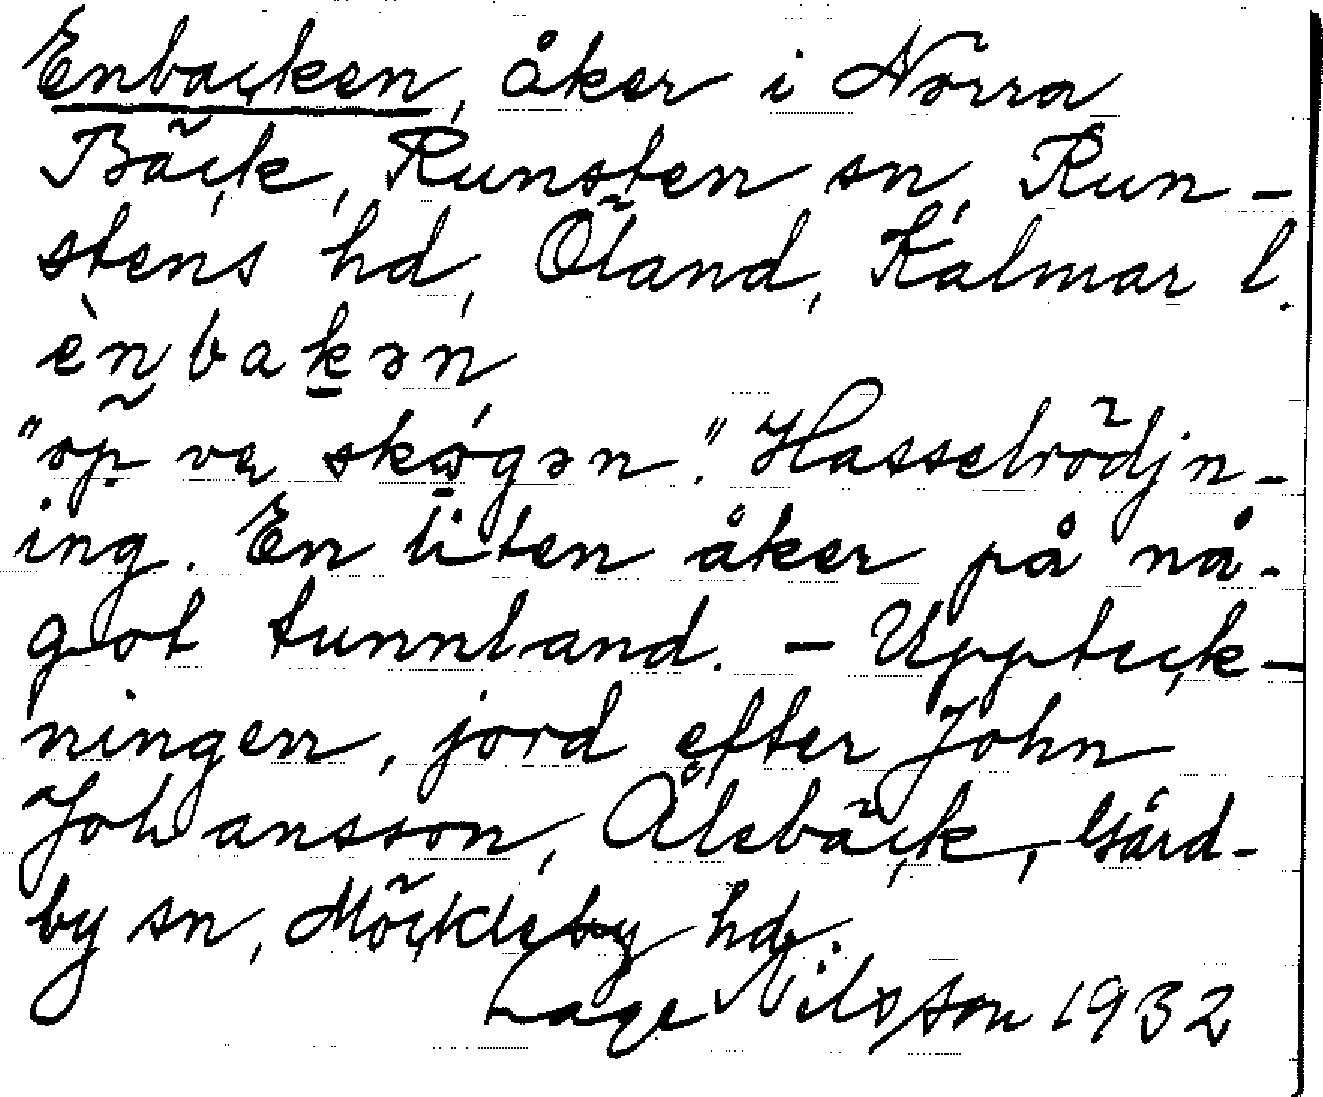 Enbacken, åker i Norra
Bäck, Runsten sn, Run-
stens hd, Öland, Kalmar l.
ènbakən
"öp va skógən". Hasselrödjn-
ing. En liten åker på nå-
got tunnland. - Uppteck-
ningen, jord efter John
Johansson, Ålebäck, Gård-
by sn, Möckleby hd.
Lage Nilsson 1932